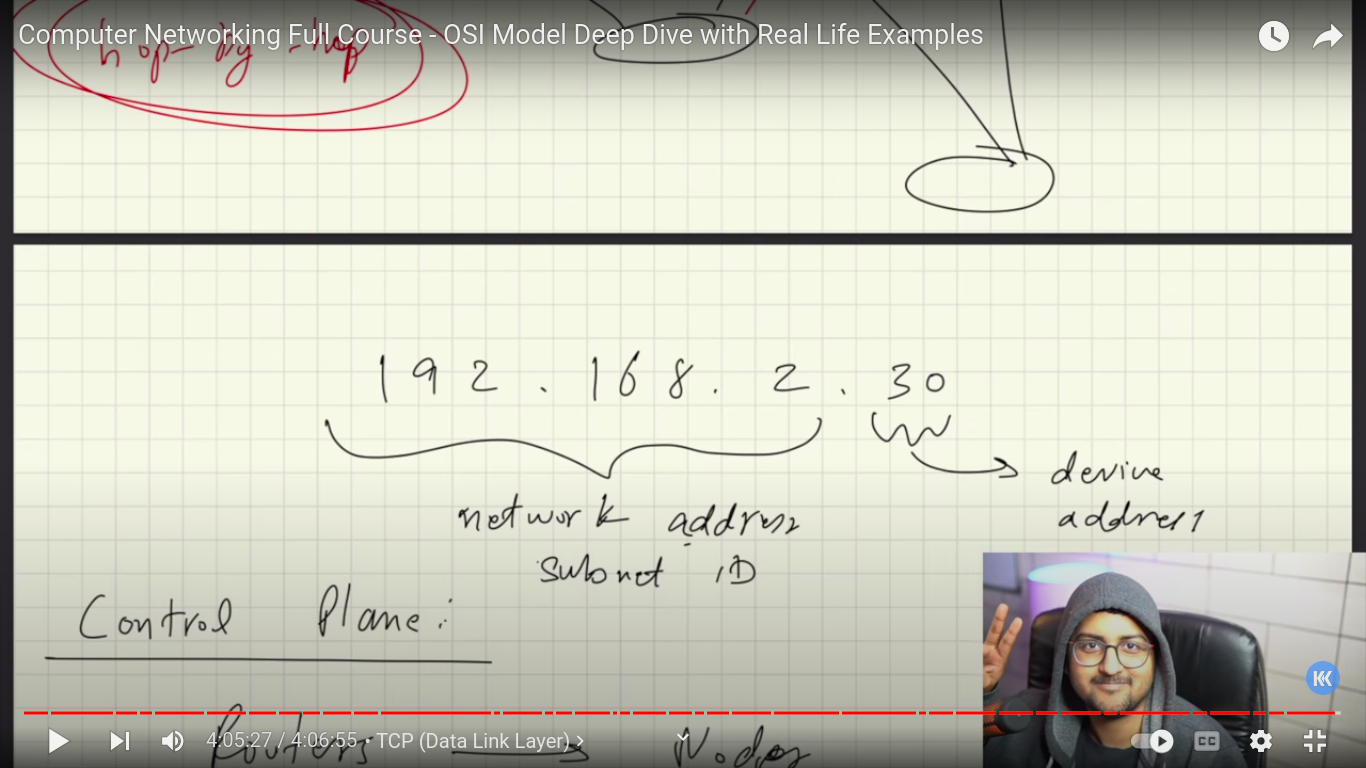 Computer Networking Full Course - OSI Model Deep Dive with Real Life Examples
hop-by-hop
192.168.2.30
network address
device
address
subnet ID
Control Plane:
Routers Nodes
4:05:27 / 4:06:55 • TCP (Data Link Layer) ›
CC